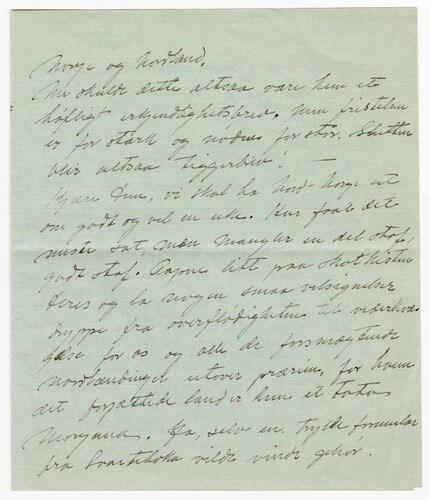 Norge og Nordland.
Nu skulde dette altsaa være kun et
høfligt erkjendtlighetsbrev. Men fristelsen
er for stærk og nøden for stor. Slutten
blir altsaa tiggerbrev! —
Kjære Dem, vi skal ha Nord-Norge ut
om godt og vel en uke. Har faat det
meste sat, men mangler en del stof,
godt stof. Aapne litt paa skatkisten
Deres og la nogen smaa velsignelser
dryppe fra overflødigheten til
for os og alle de forsmægtende
nordlændinger utover prærien, for hvem
det forjættede land er kun et Fata
Morgana. Ja, selv en trylleformular
fra Svarteboka vilde vinde gehør.